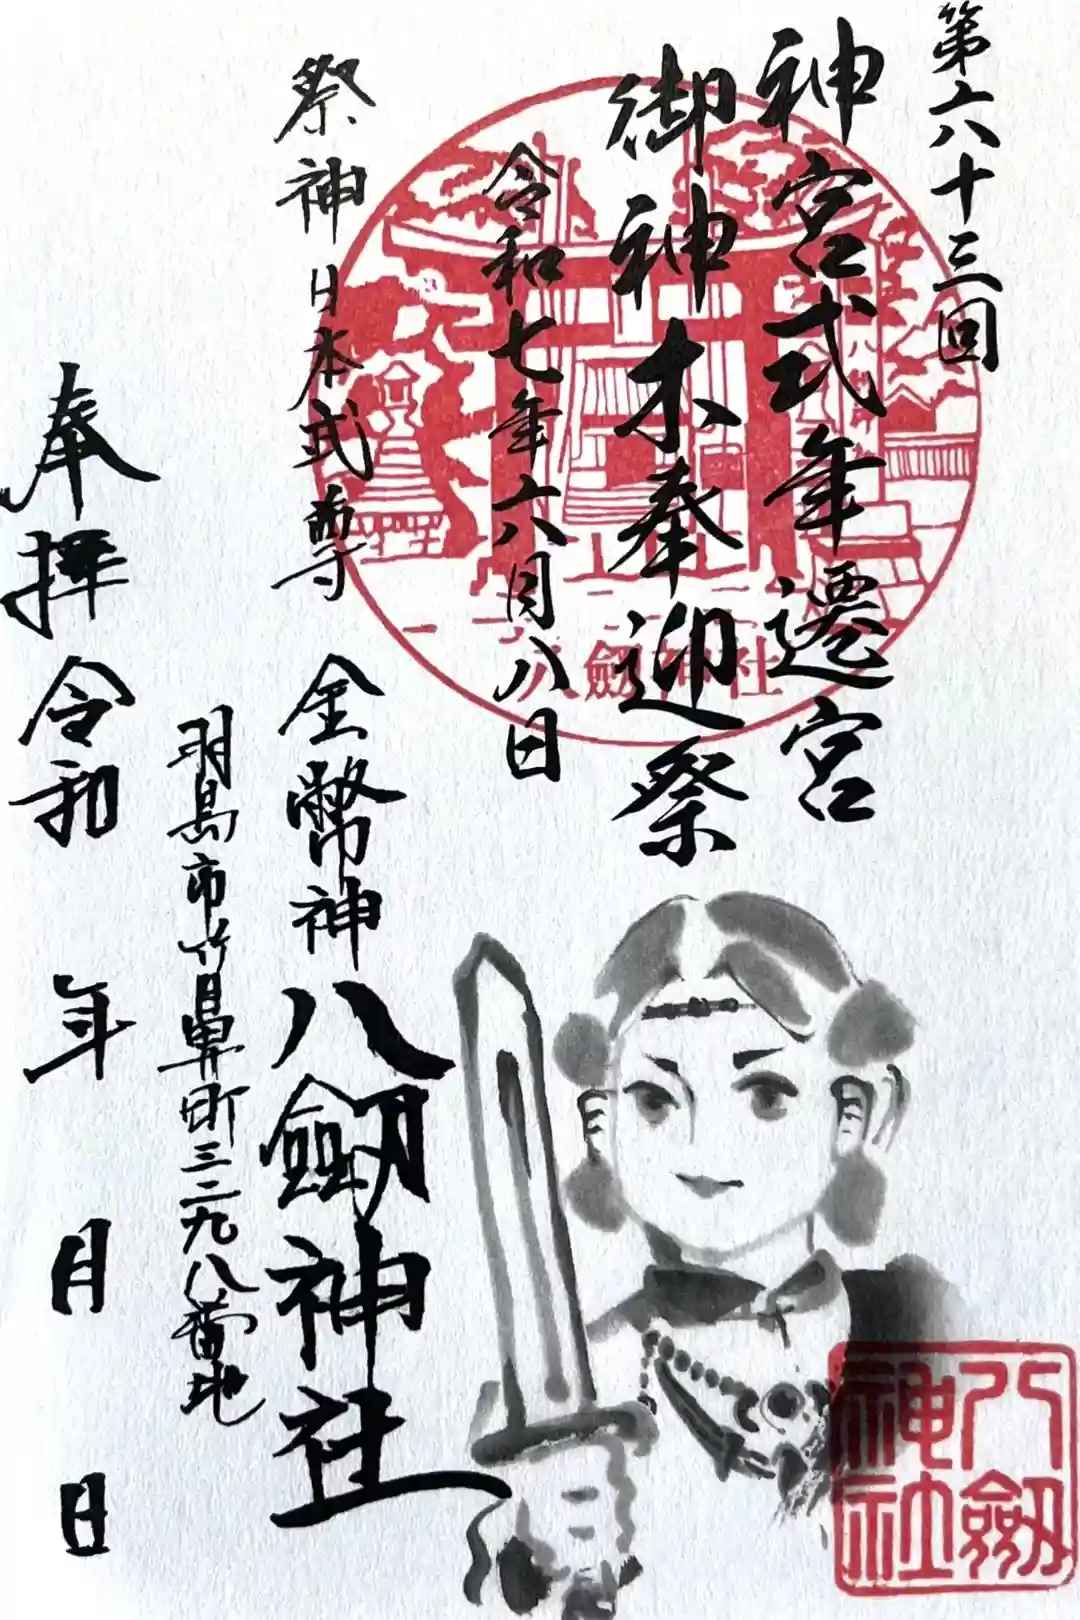 第六十三回
神宮式年遷宮
御神木奉迎祭
令和七年六月八日
八劔神社
祭神 日本武尊 金幣神
八劔神社
羽島市竹鼻町三二九八番地
奉拝 令和 年 月 日
八劔
神社